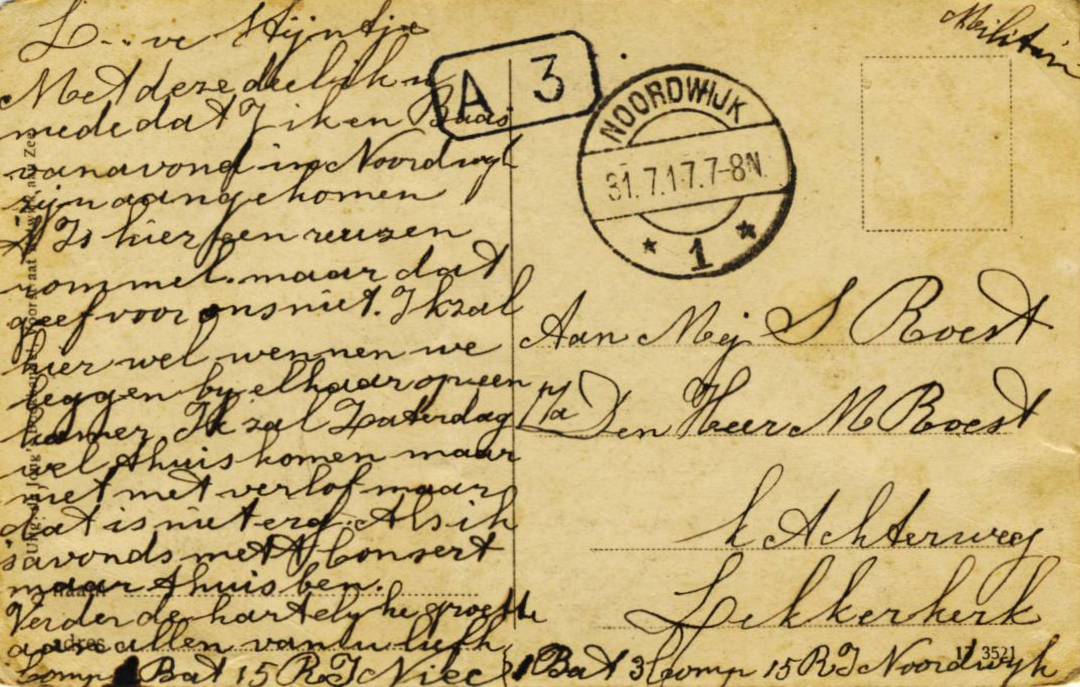 L...ve Stijntje
Met deze deel ik u
mede dat ik en Baas
van avond in Noordwyk
zijn aangekomen
Is hier een reuzen
rommel. maar dat
geef voor ons niet. Ik zal
hier wel wennen we
leggen by elkaar op een
kamer Ik zal Zaterdag
wel thuis komen maar
niet met verlof maar
dat is niet erg. Als ik
savonds met Consert
maar thuis ben.
Verder de hartelyke groette
aan allen van u liefh
Comp 1 Bat 15 R I
Militair
A. 3
NOORDWIJK
31.7.17.7-8N.
1
Aan Mej S Roest
p/a Den Heer M Roest
k Achterweg
Lekkerkerk
1 Bat 3 Comp 15 R I Noordwyk
adres
3521